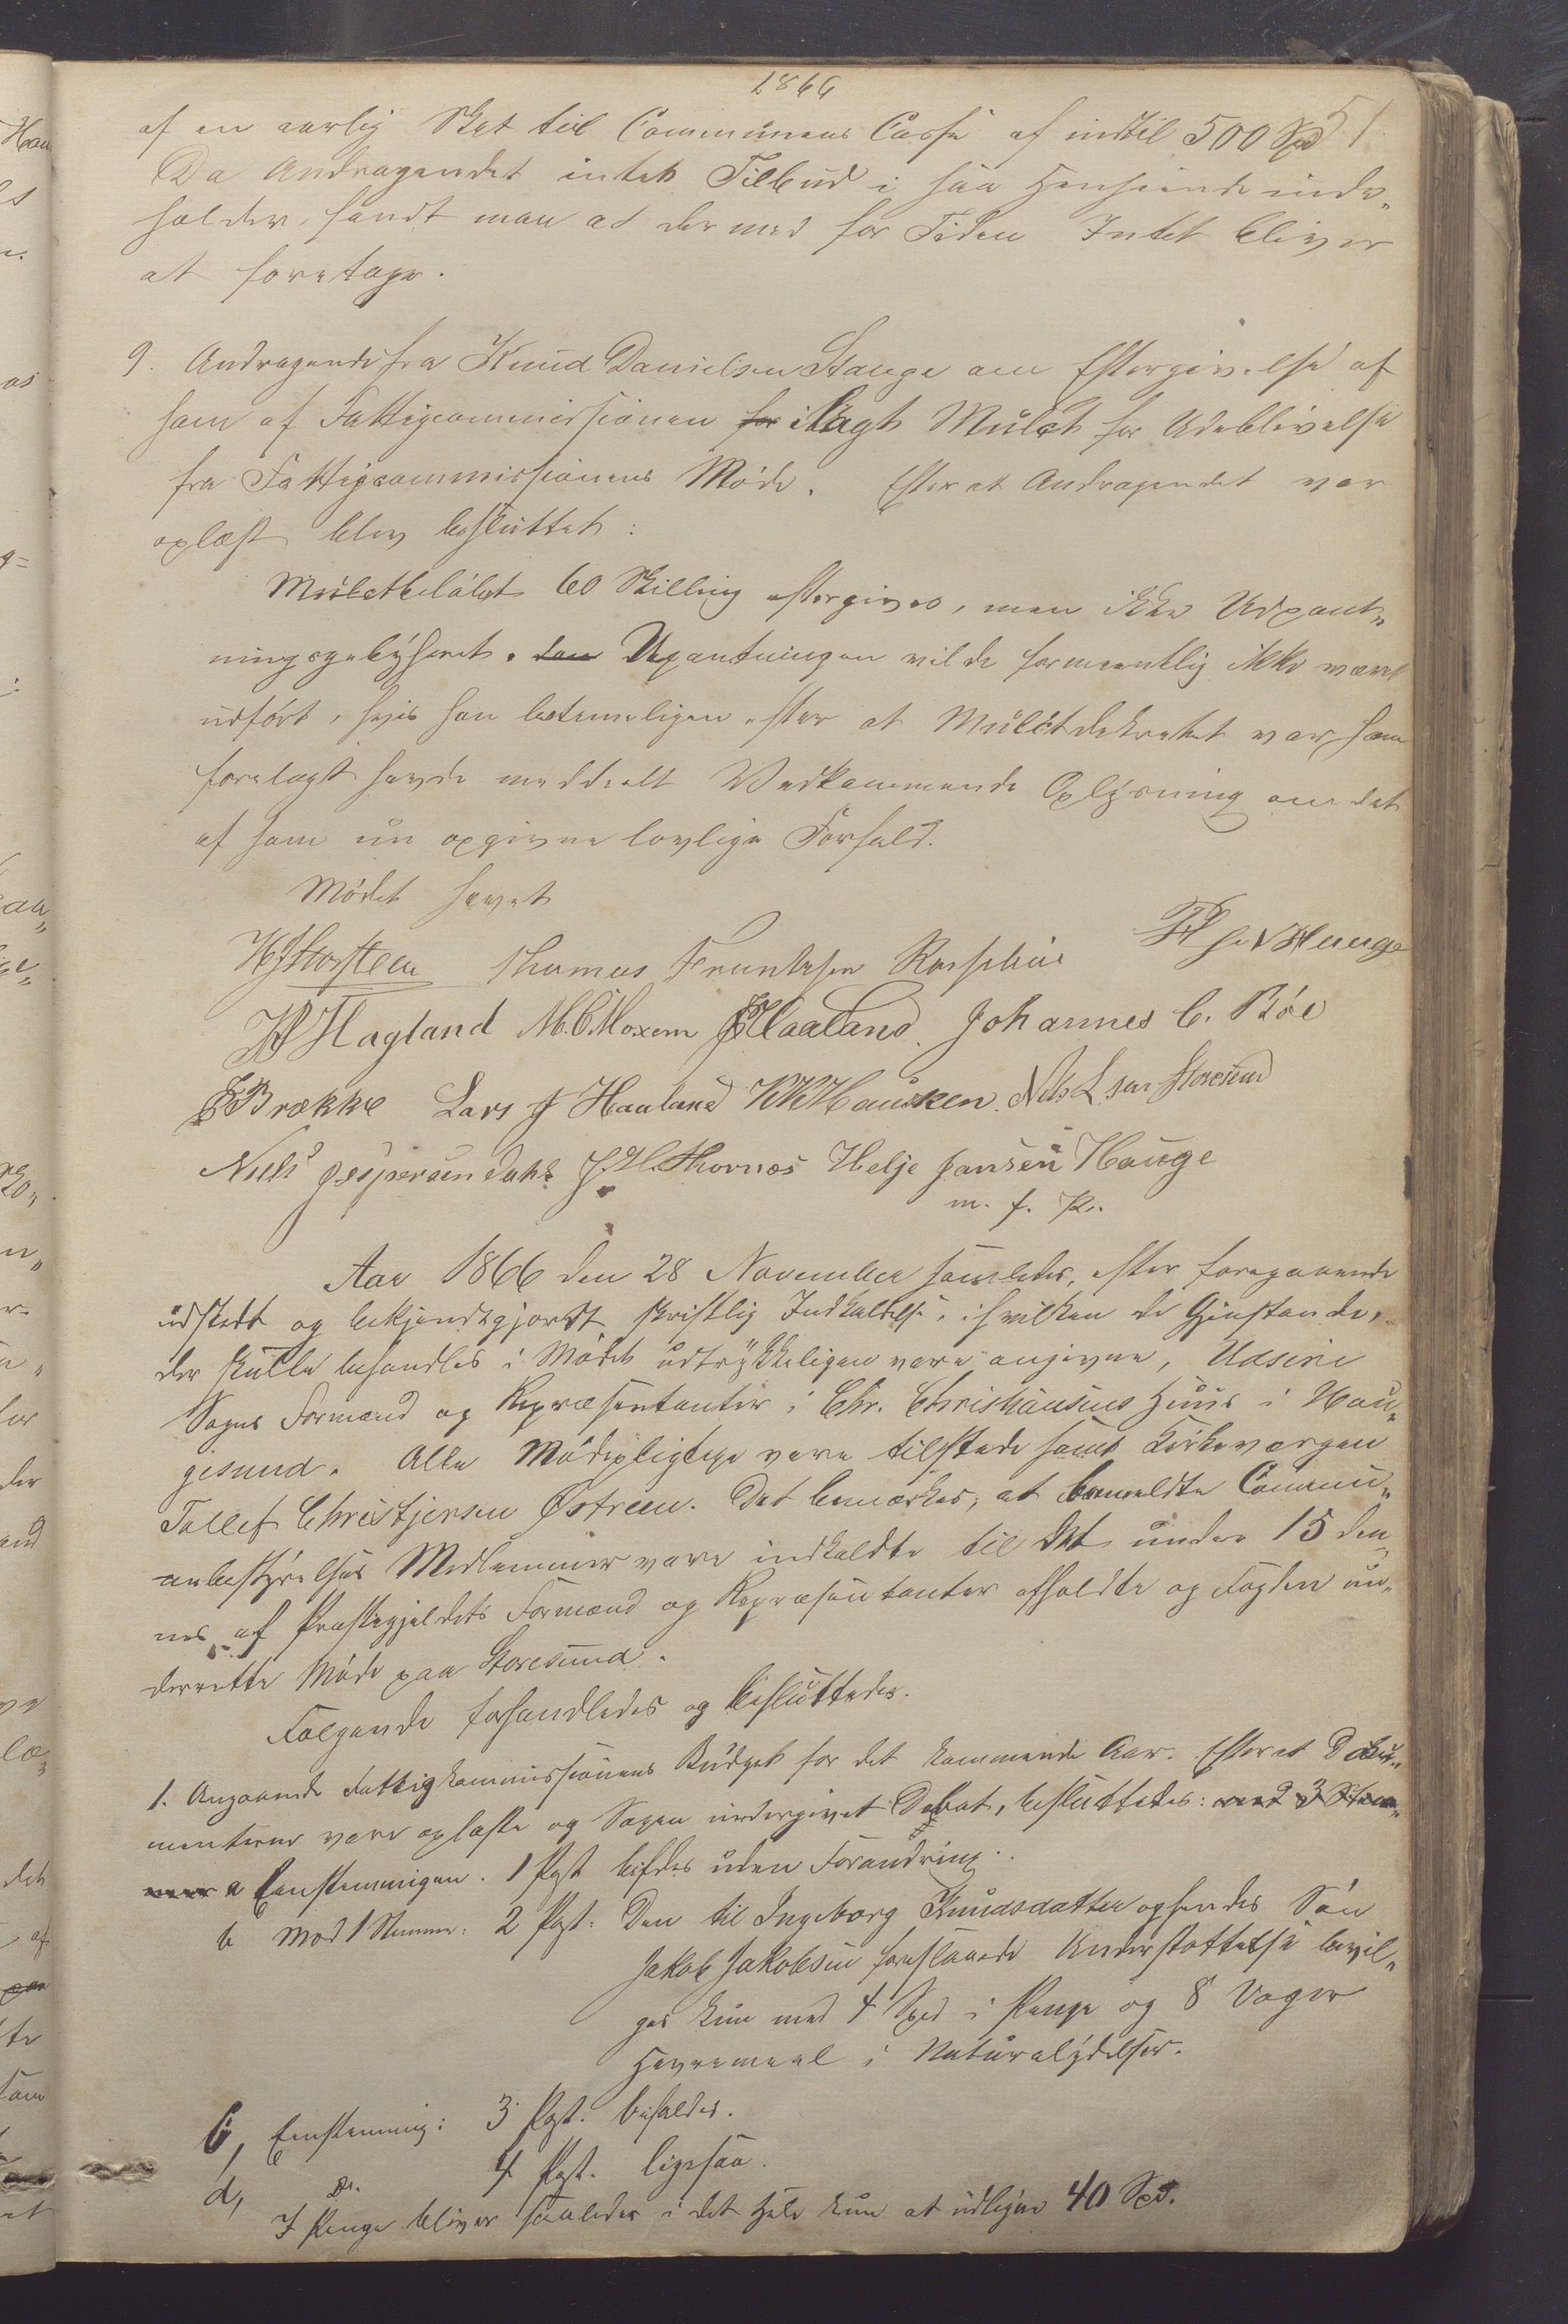 1866
51
af en aarlig Skat til Communens Casse af indtil 500 Spd
Da Andragendet intet Tilbud i saa Henseende inde„
holder, fandt man at dermed for Tiden Intet bliver
at foretage.
9. Andragende fra Knud Danielsen Stange om Eftergivelse af
ham af Fattigcommissionen for ilagt Mulct for Udeblivelse
fra Fattigcommissionens Møde. Efter at Andragendet var
oplæst blev besluttet:
Mulctbeløbet 60 Skilling eftergives, men ikke Udpant„
ningsgebyhret. Den Upantningen vilde formeentlig ikke været
udført, hvis han betimeligen efter at Mulctdekretet var ham
forelagt havde meddeelt Vedkommende Oplysning om det
af ham nu opgivne lovlige Forfald.
Mødet hævet
Thomas Rossebøe Hauge
Hagland Haaland. Johannes C. Böe
Brække Lars J Haaland Hausken. Nils L. sen Storesund
Niels Jespersen Dahl J. H. Thornøs Helje Jansen Hauge
m. f. P.
Aar 1866 den 28 November samledes, efter foregaaende
udstedt og bekjendtgjordt skriftlig Indkaldelse, i hvilken de Gjenstande,
der skulle behandles i Mødet udtrykkeligen vare angivne, Udsire
Sogns Formænd og Repræsentanter i Chr. Christiansens Huus i Hau„
gesund. Alle Mødepligtige vare tilstede samt Kirkeværgen
Tollef Christjensen Østreem. Det bemærkes, at bemeldte Commu„
nebestyrelses Medlemmer vare indkaldte til det under 15 den„
nes af Præstegjeldets Formænd og Repræsentanter afholdte og Fogden un„
derrette Møde paa Storesund.
Følgende forhandledes og besluttedes.
1. Angaaende Fattigkommissionens Budget for det kommende Aar. Efterat Doku„
menterne vare oplæste og Sagen undergivet Debat, besluttedes: med 3 Stem„
mer a Eenstemmigen. 1 Pgst bifaldes uden Forandring.
b Mod 1 Stemme: 2 Pgst: Den til Ingeborg Knudsdatter og hendes Søn
Jakob Jakobsen foreslaaede Understøttelse bevil„
ges kun med 4 Spd i Penge og 8 Voger
Havremeel i Naturalydelser.
c, Eenstemmig: 3 Pgst. bifaldes.
d, do. 4 Pgst. ligesaa.
I Penge bliver saaledes i det Hele kun at udligne 40 Spd.